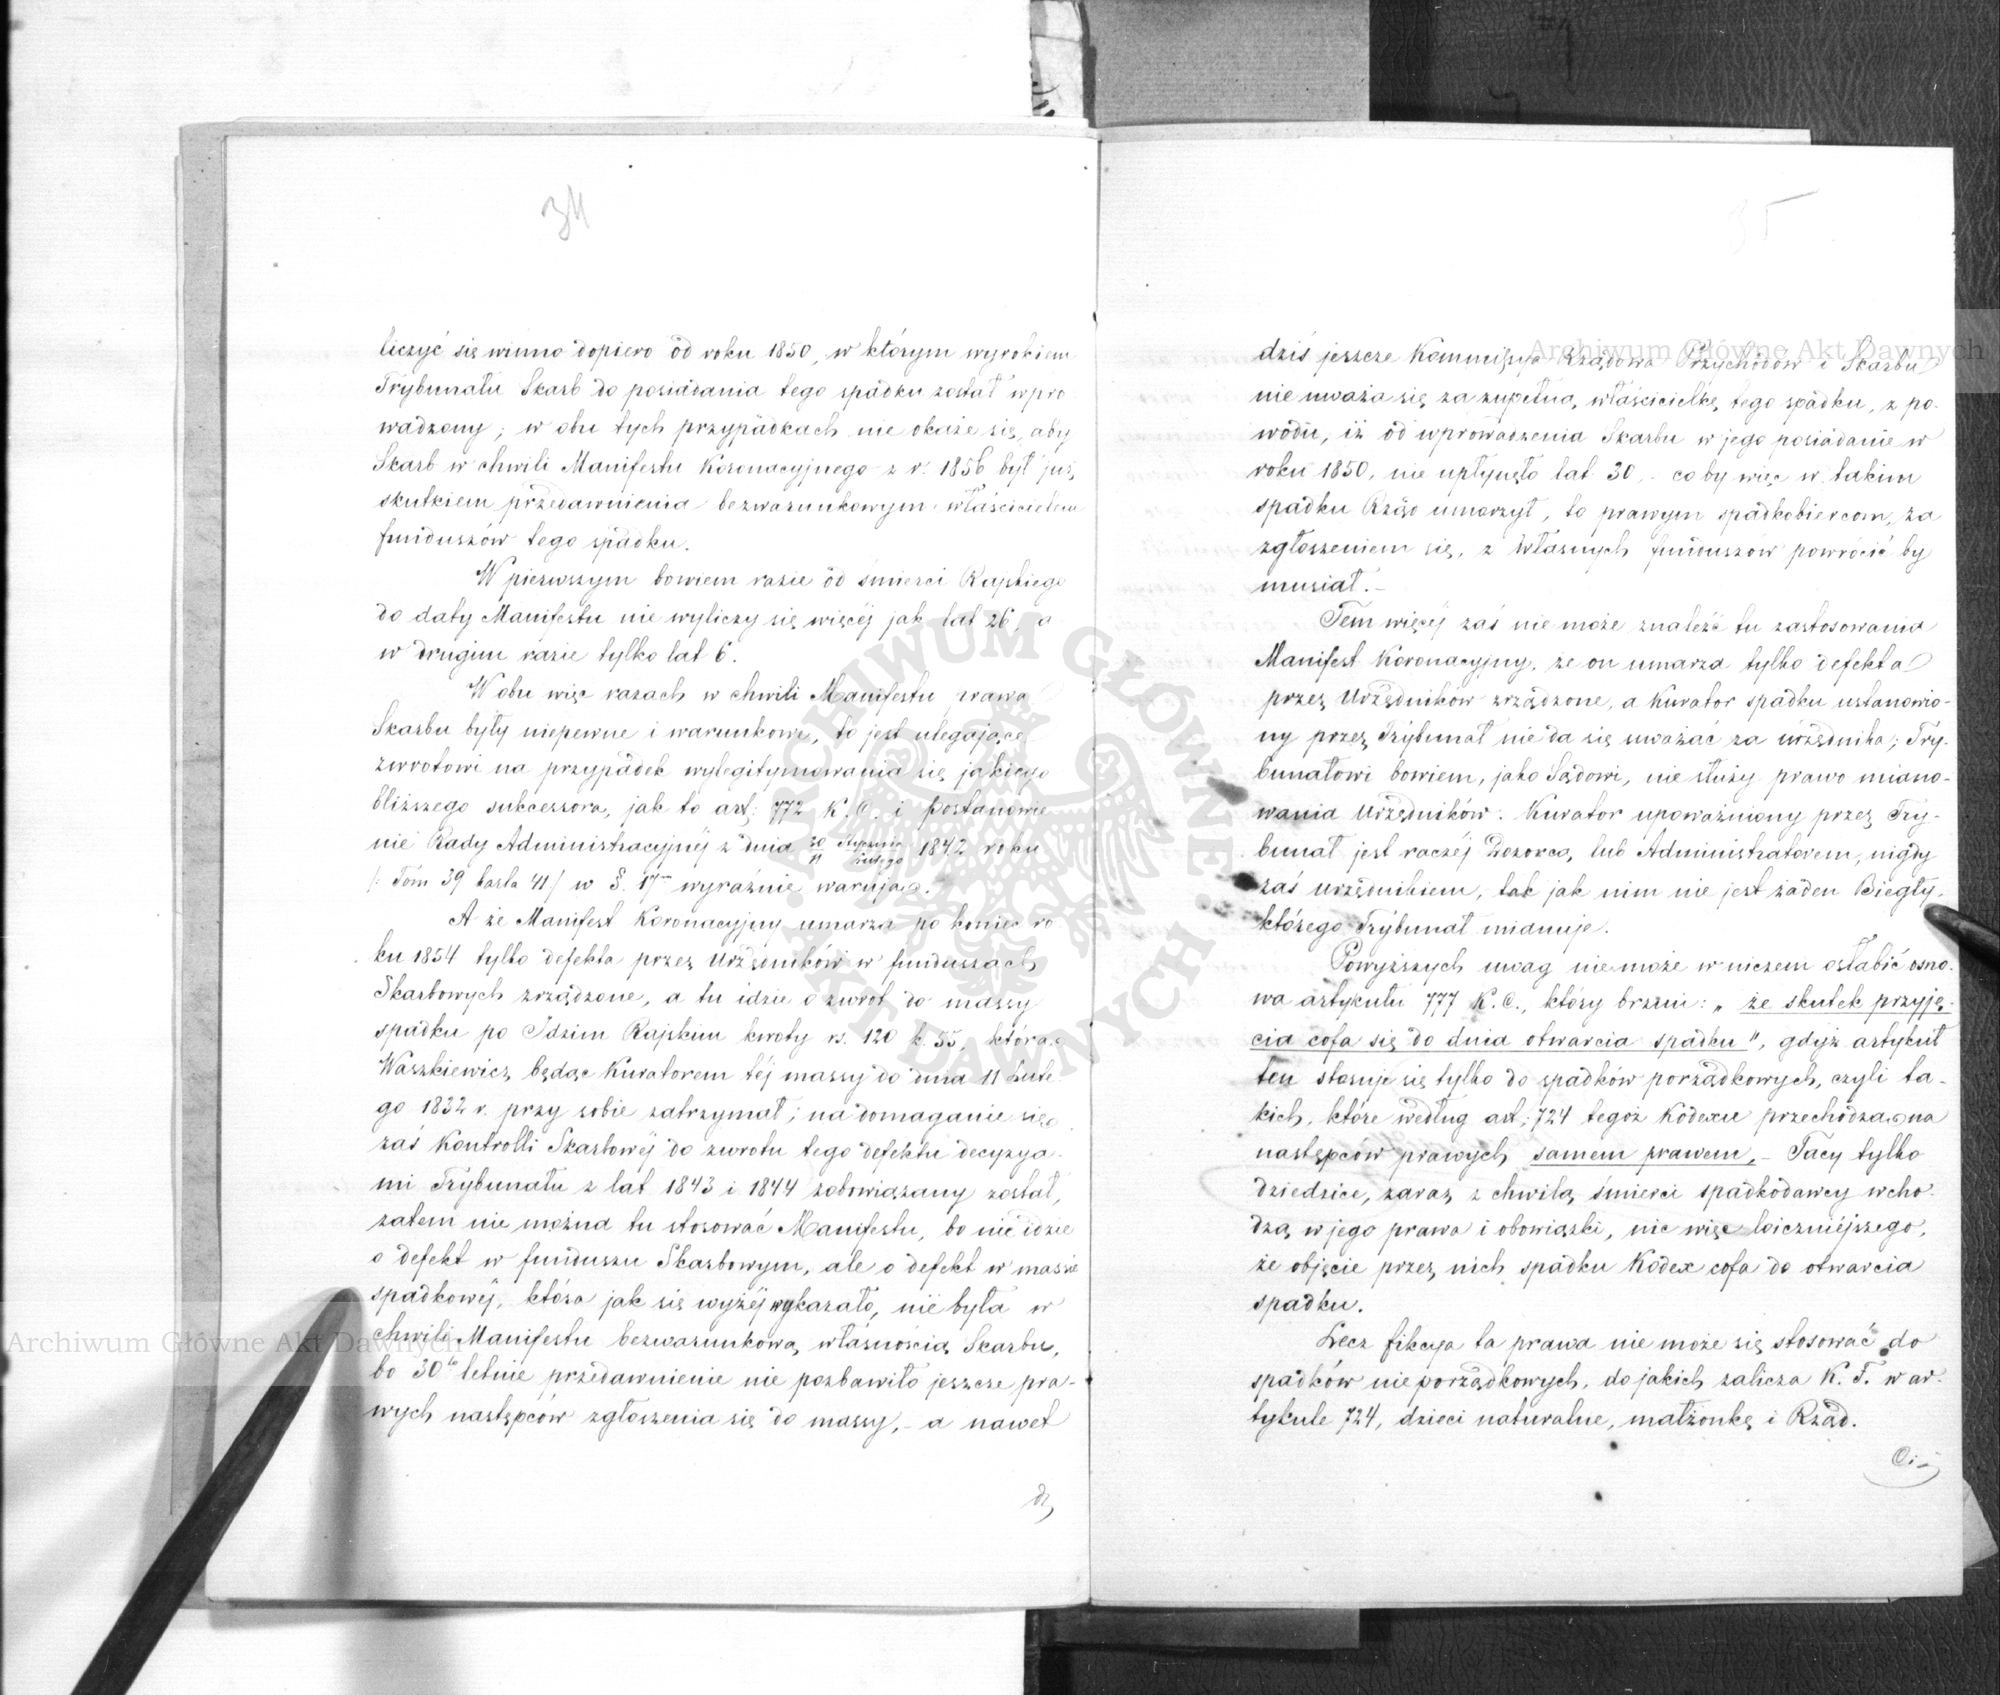 34
liczyć się winno dopiero od roku 1850, w którym wyrokiem
Trybunału Skarb do posiadania tego spadku został wpro
wadzony; w obu tych przypadkach nie okaże się, aby
Skarb w chwili Manifestu Koronacyjnego z r. 1856 był już
skutkiem przedawnienia bezwarunkowym właścicielem
funduszów tego spadku.
W pierwszym bowiem razie od śmierci Rajskiego
do daty Manifestu nie wyliczy się więcéj jak lat 26, a
w drugim razie tylko lat 6.
W obu więc razach w chwili Manifestu prawa
Skarbu były niepewne i warunkowe, to jest ulegające
zwrotowi na przypadek wylegitymowania się jakiego
bliższego sukcessora, jak to art: 772 K. C. i postanowie
nie Rady Administracyjnéj z dnia 30/11 Stycznia/Lutego 1842 roku
/: Tom 39 karta 41/ w §. 17 wyraźnie warują.
A że Manifest Koronacyjny umarza po koniec ro
ku 1854 tylko defekta przez Urzędników w funduszach
Skarbowych zrządzone, a tu idzie o zwrot do massy
spadku po Idzim Rajskim kwoty rs. 120 k. 55, którą
Waszkiewicz będąc Kuratorem téj massy do dnia 11 Lute
go 1832 r. przy sobie zatrzymał; na domaganie się
zaś Kontrolli Skarbowéj do zwrotu tego defektu decyzya
mi Trybunału z lat 1843 i 1844 zobowiązany został,
zatem nie można tu stosować Manifestu, bo nie idzie
o defekt w funduszu Skarbowym, ale o defekt w massie
spadkowéj, która jak się wyżéj wykazało, nie była w
chwili Manifestu bezwarunkową własnością Skarbu,
bo 30to letnie przedawnienie nie pozbawiło jeszcze pra-
wych następców zgłoszenia się do massy, - a nawet
dz
35
dziś jeszcze Kommissya Rządowa Przychodów i Skarbu
nie uważa się za zupełną właścicielkę tego spadku, z po-
wodu, iż od wprowadzenia Skarbu w jego posiadanie w
roku 1850, nie upłynęło lat 30, - coby więc w takim
spadku Rząd umorzył, to prawym spadkobiercom, za
zgłoszeniem się, z własnych funduszów powrócić by
musiał. -
Tem więcéj zaś nie może znaleźć tu zastosowania
Manifest Koronacyjny, że on umarza tylko defekta
przez Urzędników zrządzone, a Kurator spadku ustanowio-
ny przez Trybunał nie da się uważać za urzędnika; Try-
bunałowi bowiem, jako Sądowi, nie służy prawo miano-
wania Urzędników. Kurator upoważniony przez Try-
bunał jest raczéj Dozorcą, lub Administratorem, nigdy
zaś urzędnikiem, tak jak nim nie jest żaden Biegły,
którego Trybunał mianuje.
Powyższych uwag nie może w niczem osłabić osno-
wa artykułu 777 K. C., który brzmi: „że skutek przyję-
cia cofa się do dnia otwarcia spadku", gdyż artykuł
ten stosuje się tylko do spadków porządkowych, czyli ta-
kich, które według art: 724 tegoż Kodexu przechodzą na
następców prawych samem prawem, - Tacy tylko
dziedzice, zaraz z chwilą śmierci spadkodawcy wcho-
dzą w jego prawa i obowiązki, nic więc loiczniejszego,
że objęcie przez nich spadku Kodex cofa do otwarcia
spadku.
Lecz fikcya ta prawa nie może się stosować do
spadków nieporządkowych, do jakich zalicza K. F. w ar-
tykule 724, dzieci naturalne, małżonkę i Rząd.
Ci-
Archiwum Główne Akt Dawnych
Archiwum Główne Akt Dawnych
ARCHIWUM GŁÓWNE AKT DAWNYCH